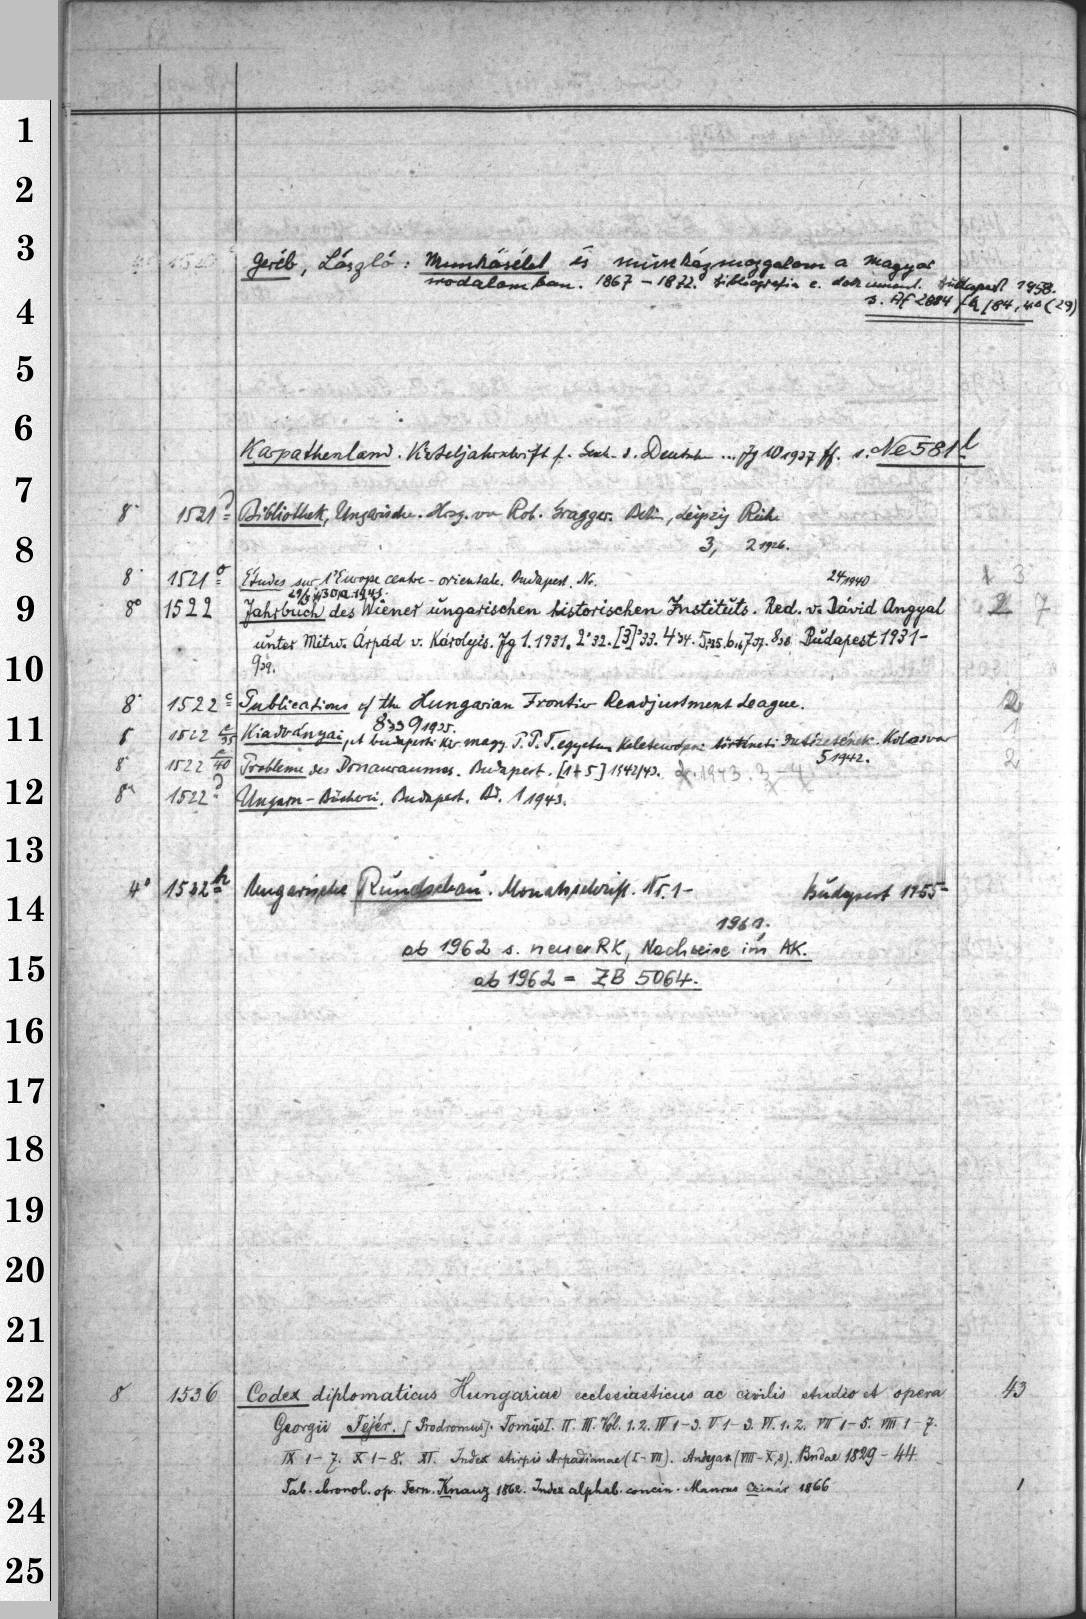 1
2
3
Geréb, László: Munkásélet és munkásmozgalom a magyar
irodalomban. 1867 – 1872. Bibliografia e. dokument. Budapest 1958.
4
5
6
Karpathenland. Vierteljahrschrift f. Gesch. d. Deutsch ... Jg 10 1937 ff. s. Ne 581 l
7
8° 1521 Bibliothek, Ungarische. Hrsg. von Rob. Gragger. Berlin, Leipzig Reihe
8
3, 2 1926.
8° 1521 Études sur l'Europe centre-orientale. Budapest. No. 24 1940
9
8° 1522 Jahrbuch des Wiener ungarischen historischen Instituts. Red. v. Dávid Angyal 2 7
unter Mitw. Árpád v. Károlyis. Jg 1.1931. 2 '32. [3] '33. 4 34. 5 35. 6 36 7 37. 8 38 Budapest 1931–
10
9 39.
8° 1522 e Publications of the Hungarian Frontier Readjustment League. 2
11
8 33 9 1935.
1522 Kiadványai, A budapesti kir magy. P. P. T. egyetem Keleteuropai történeti Intézetének. Kolozsvár 1
5 1942.
8° 1522 e/40 Probleme des Donauraumes. Budapest. [1+5] 1942/43. 1943. 3–4 2
12
8° 1522 Ungarn-Bücherei. Budapest. Bd. 1 1943.
13
4° 1532 h Ungarische Rundschau. Monatsschrift. Nr. 1– Budapest 1955–
14
1961.
ab 1962 s. neuer RK, Nachweise im AK.
15
ab 1962 = ZB 5064.
16
17
18
19
20
21
22
8 1536 Codex diplomaticus Hungariae ecclesiasticus ac civilis studio et opera 43
Georgii Fejér. [Prodromus]. Tomus I. II. III. Vol. 1. 2. IV 1–3. V 1–3. VI. 1. 2. VII 1–5. VIII 1–7.
23
IX 1–7. X 1–8. XI. Index stirpis Arpadianae (I–VII). Andegav (VIII–X,8). Budae 1829–44
Tab. chronol. op. Fern. Knauz 1862. Index alphab. concin. Maurus Czinár 1866 1
24
25